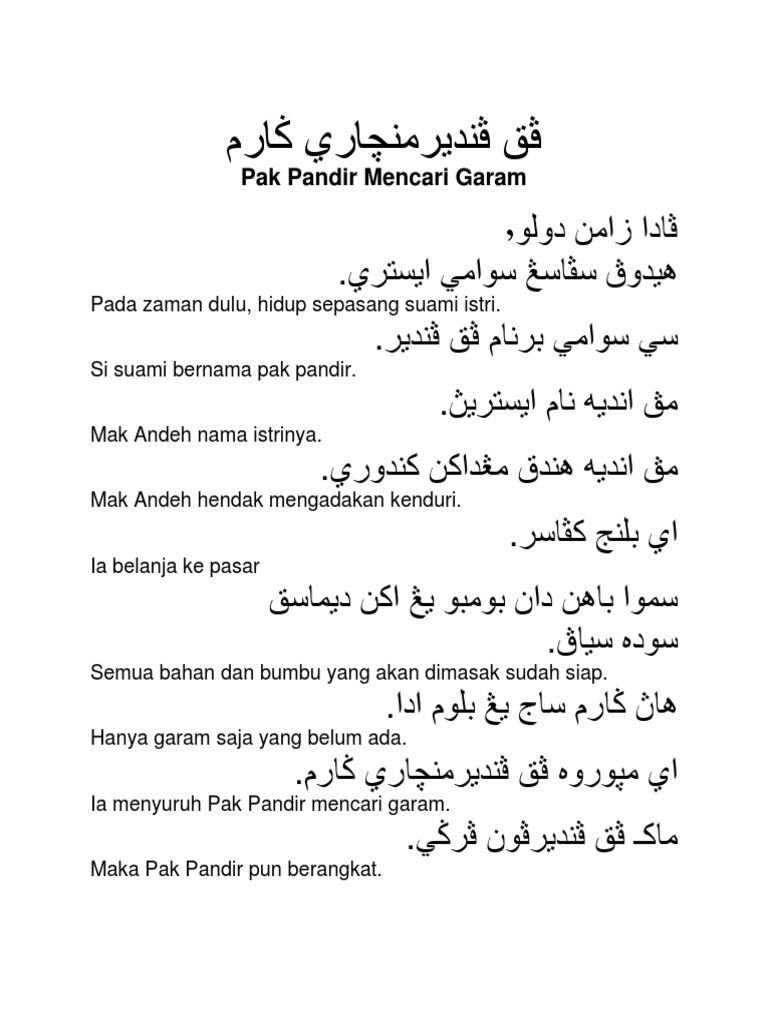 ڤق ڤنديرمنچاري ݢارم
Pak Pandir Mencari Garam
ڤادا زامن دولو,
هيدوڤ سڤاسڠ سوامي ايستري.
Pada zaman dulu, hidup sepasang suami istri.
سي سوامي برنام ڤق ڤندير.
Si suami bernama pak pandir.
مق انديه نام ايستريڽ.
Mak Andeh nama istrinya.
مق انديه هندق مڠداكن كندوري.
Mak Andeh hendak mengadakan kenduri.
اي بلنج كڤاسر.
Ia belanja ke pasar
سموا باهن دان بومبو يڠ اكن ديماسق
سوده سياڤ.
Semua bahan dan bumbu yang akan dimasak sudah siap.
هاڽ ݢارم ساج يڠ بلوم ادا.
Hanya garam saja yang belum ada.
اي مپوروه ڤق ڤنديرمنچاري ݢارم.
Ia menyuruh Pak Pandir mencari garam.
ماكـ ڤق ڤنديرڤون ڤرݢي.
Maka Pak Pandir pun berangkat.